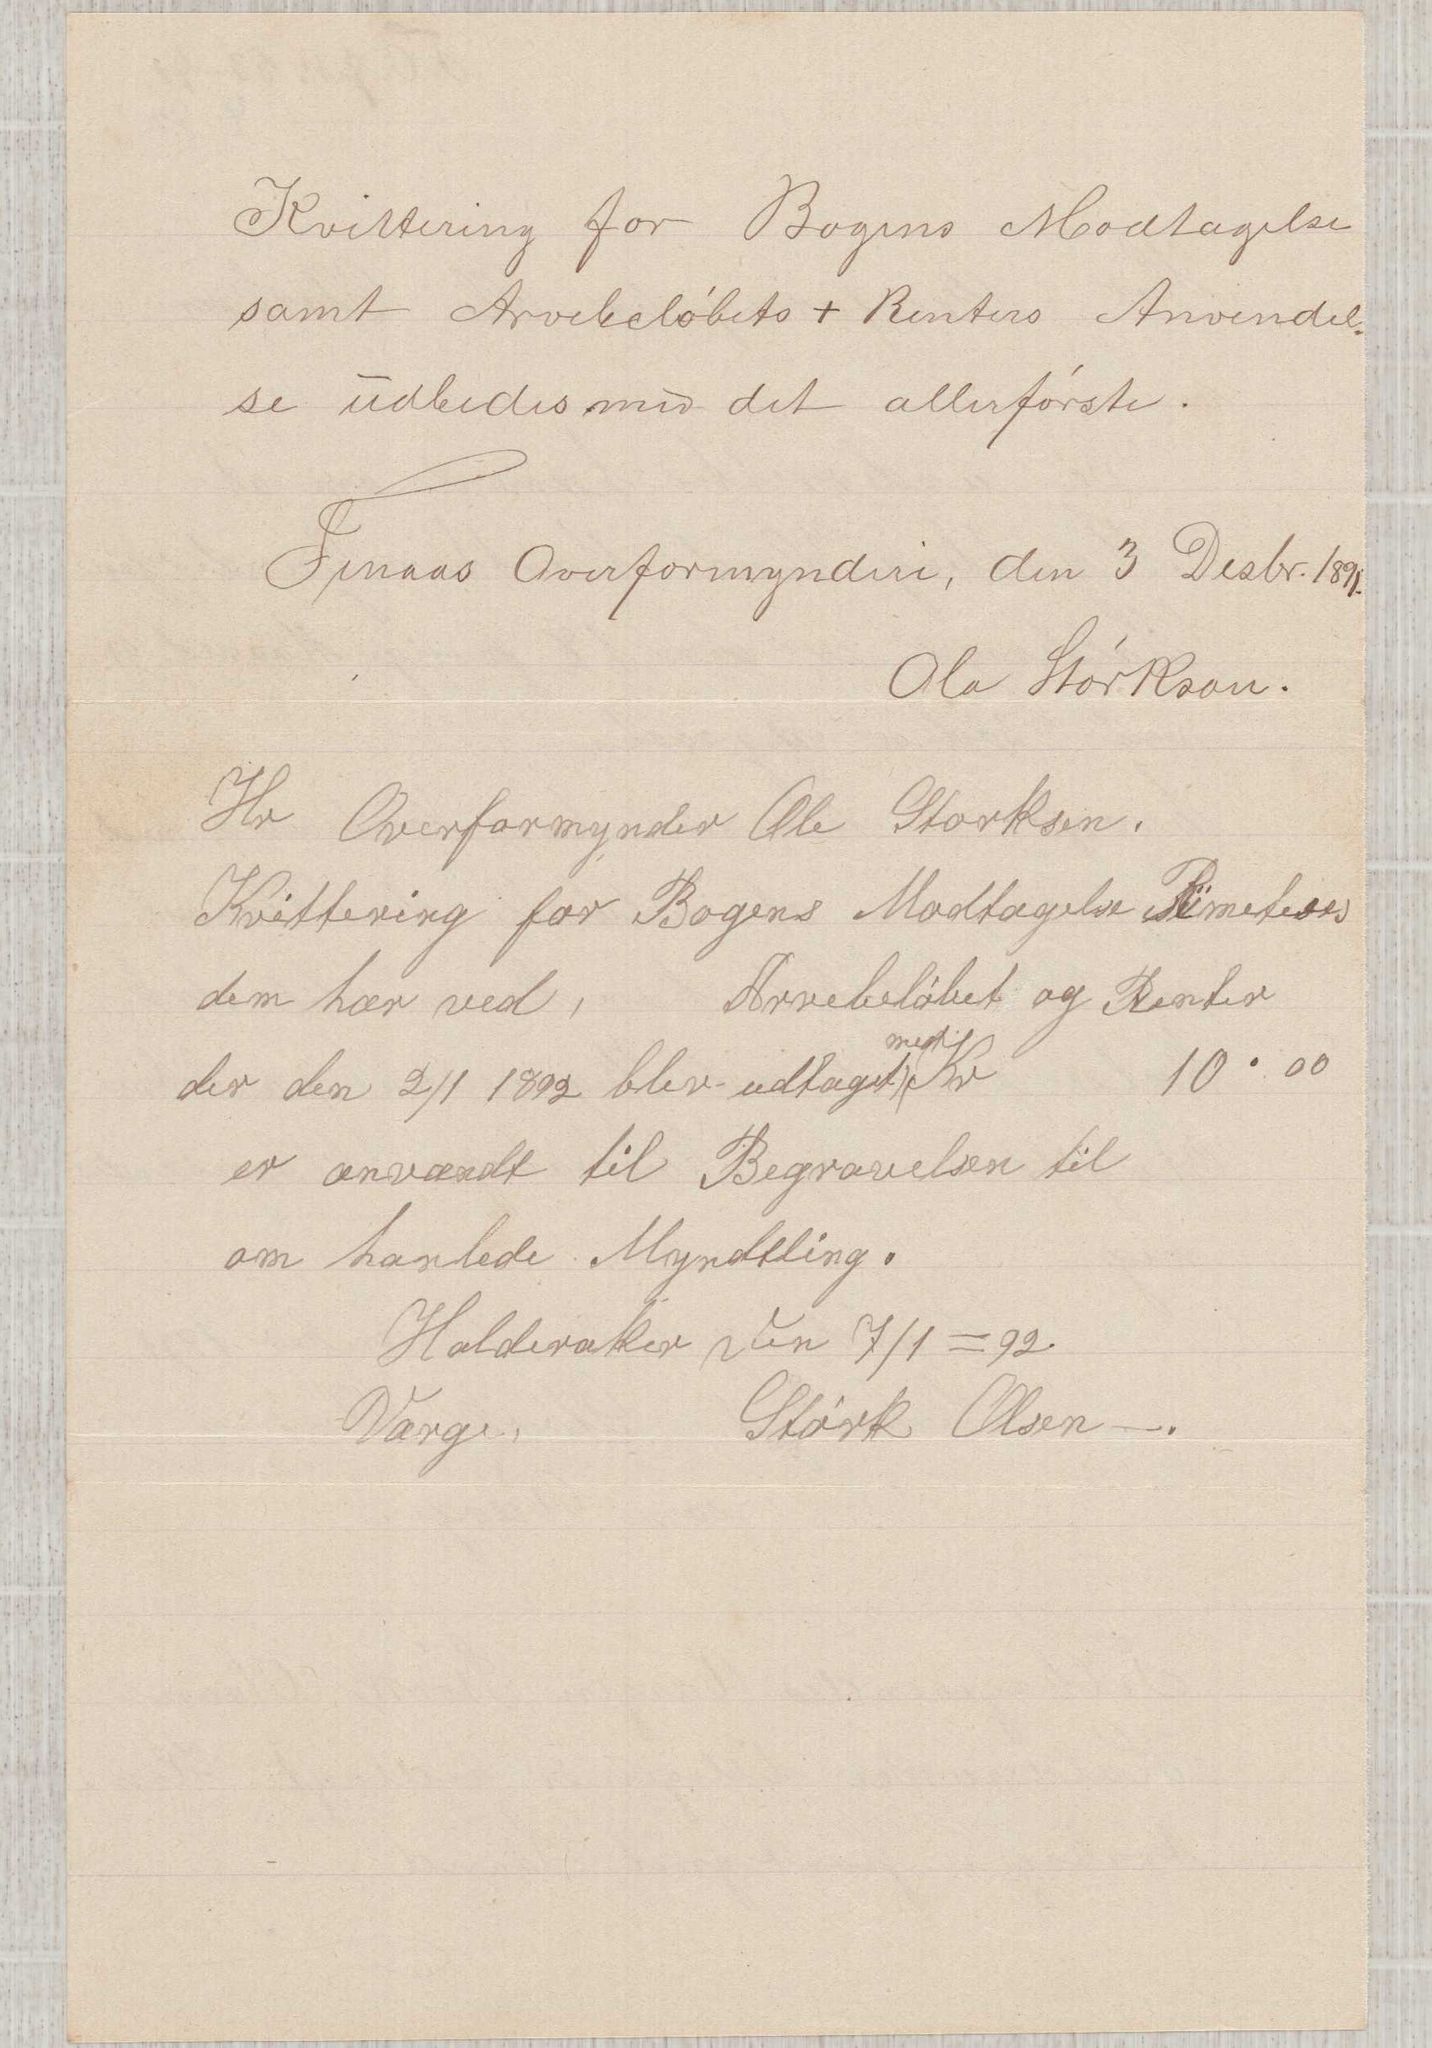 Kvittering for Bogens Modtagelse
samt Arvebeløbets + Renters Anvendel-
se ūdbedes med det allerførste.
Finaas Overformynderi, den 3 Desbr. 1891.
Ola Størkson.
Hr Overformynder Ole Storksen.
Kvittering for Bogens Modtagelse Rimeteres
dem hær ved, Arvebeløbet og Renter
der den 2/1 1892 blev udtaget med Kr 10.00
er anvændt til Begravelsen til
om hanlede Myndtling.
Halderaker den 7/1=92.
Værge, Størk Olsen —.